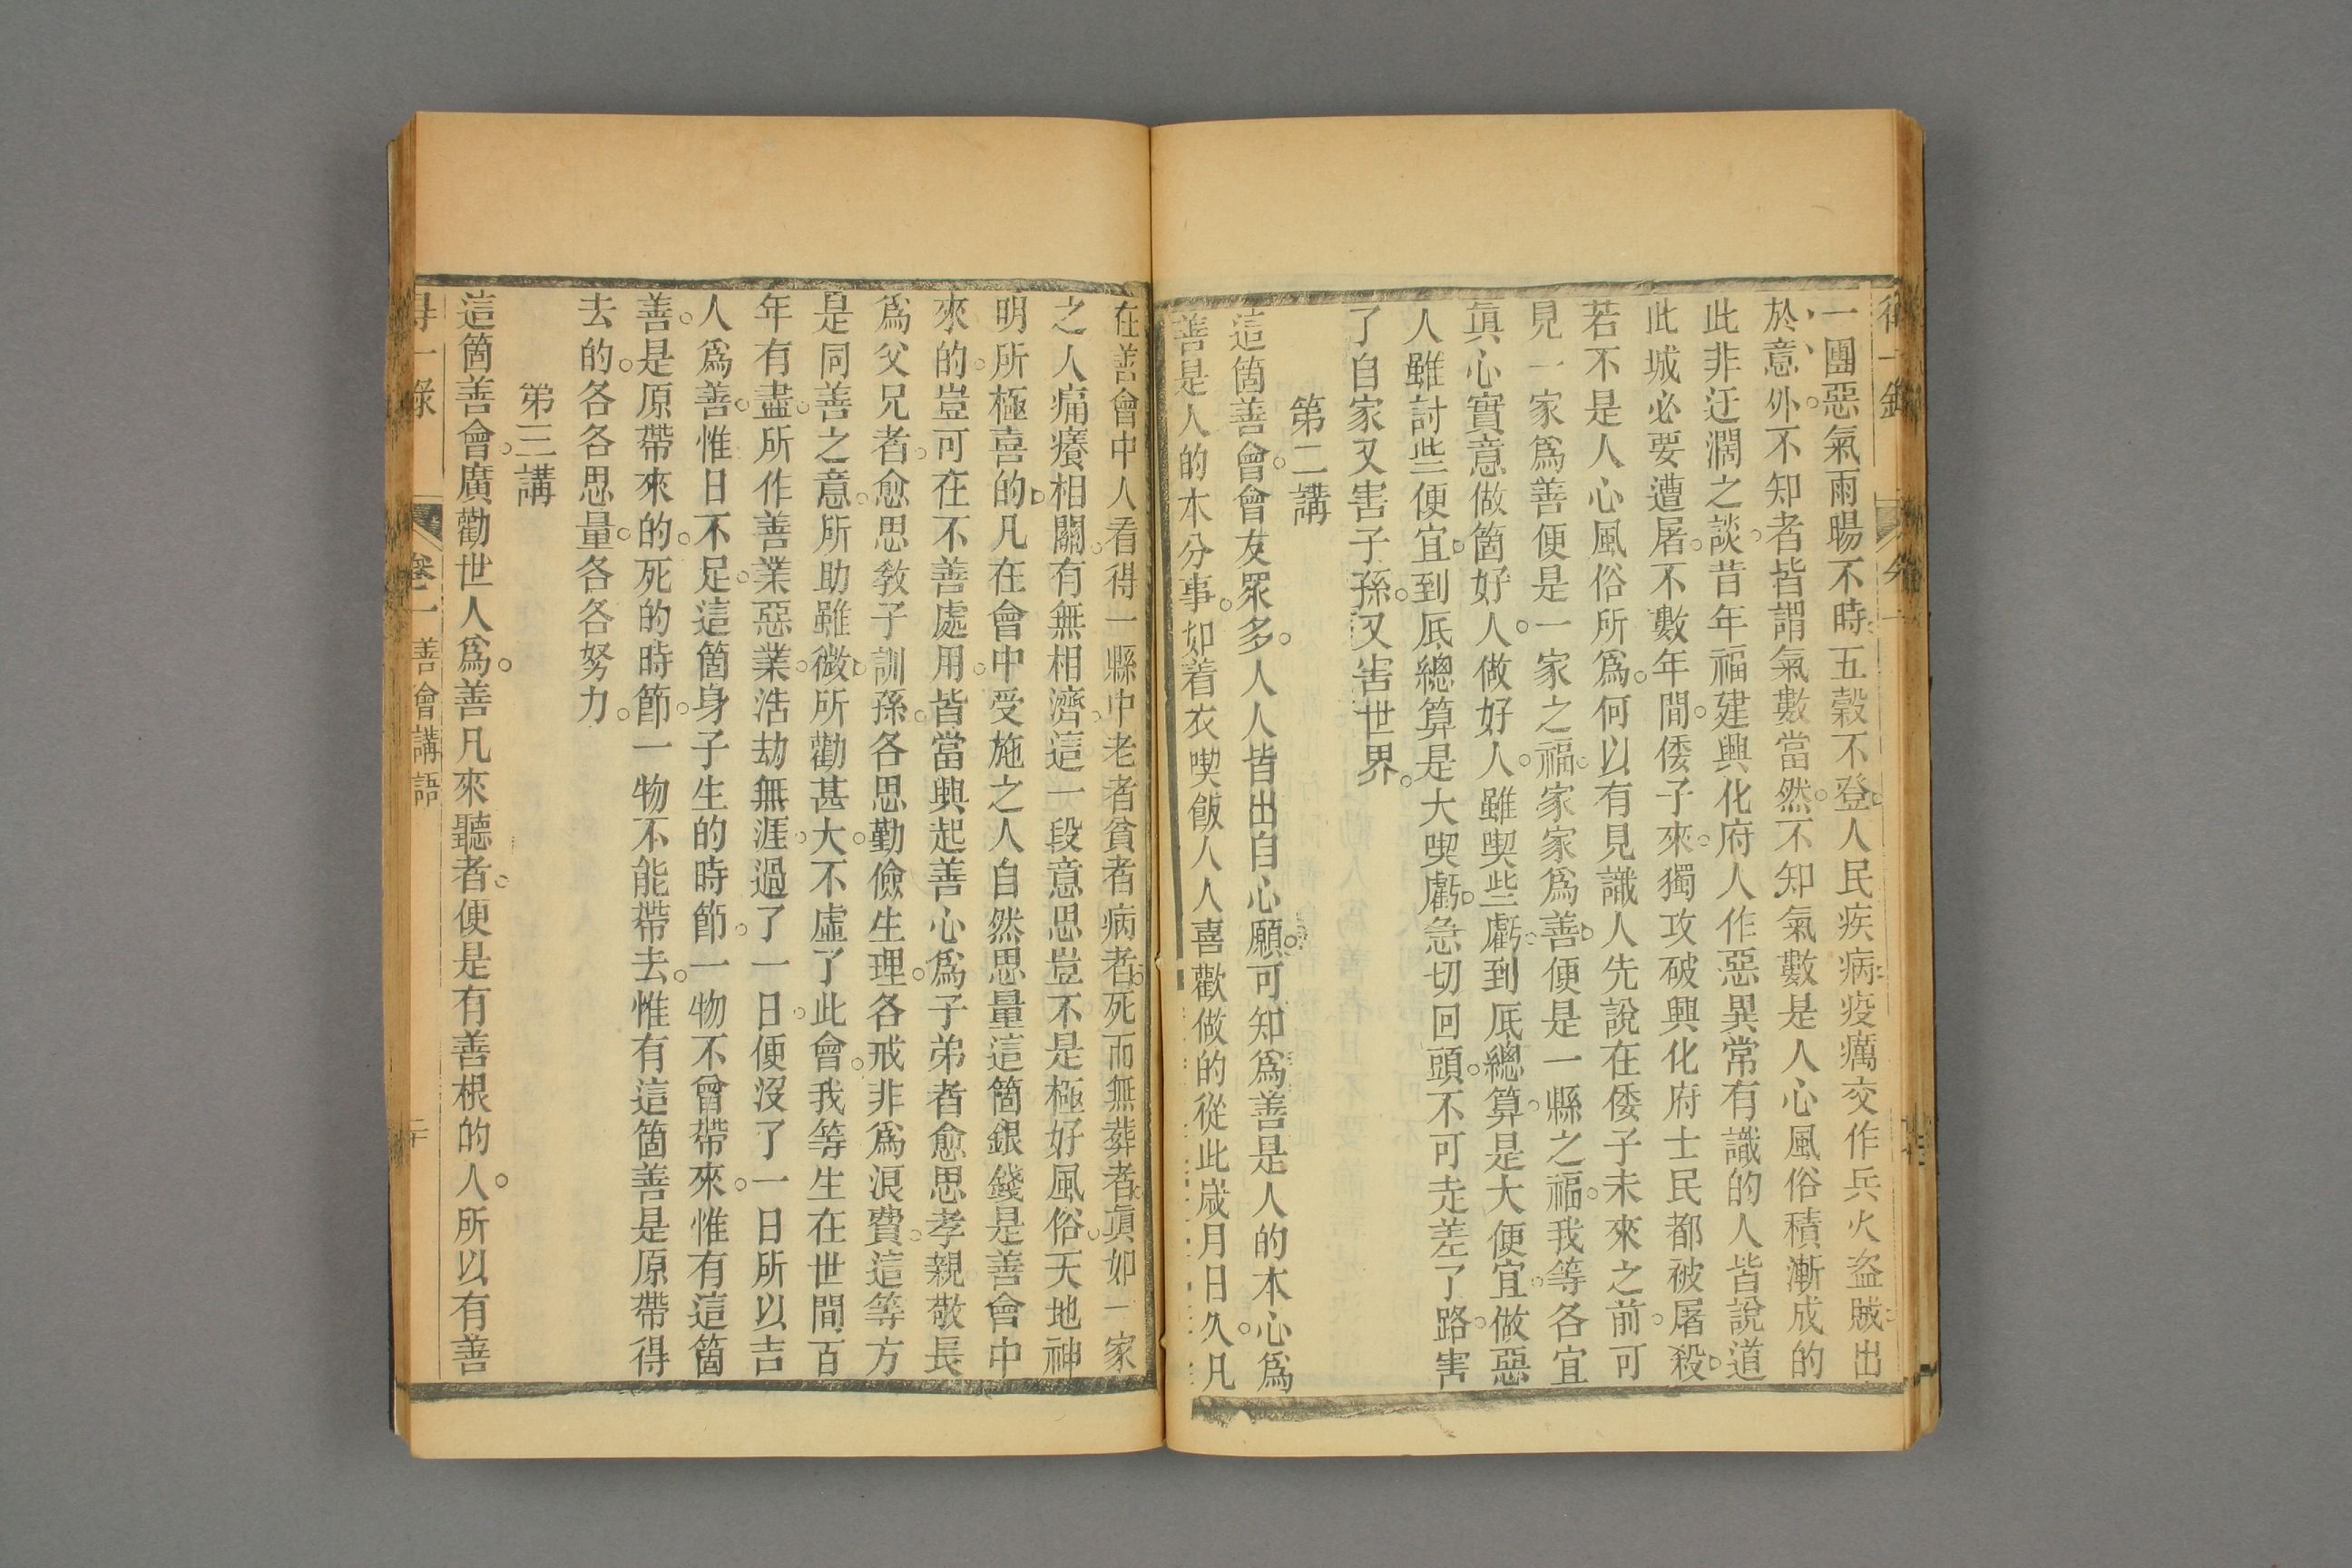 一團惡氣雨暘不時五穀不登人民疾病疫癘交作兵火盜賊出
於意外不知者皆謂氣數當然不知氣數是人心風俗積漸成的
此非迂濶之談昔年福建興化府人作惡異常有識的人皆說道
此城必要遭屠不數年間倭子來獨攻破興化府士民都被屠殺
若不是人心風俗所爲何以有見識人先說在倭子未來之前可
見一家爲善便是一家之福家家爲善便是一縣之福我等各宜
眞心實意做箇好人做好人雖喫些虧到底總算是大便宜做惡
人雖討些便宜到底總算是大喫虧急切回頭不可走差了路害
了自家又害子孫又害世界
第二講
這箇善會會友眾多人人皆出自心願可知爲善是人的本心爲
善是人的本分事如着衣喫飯人人喜歡做的從此歲月日久凡
在善會中人看得一縣中老者貧者病者死而無葬者眞如一家
之人痛癢相關有無相濟這一段意思豈不是極好風俗天地神
明所極喜的凡在會中受施之人自然思量這箇銀錢是善會中
來的豈可在不善處用皆當興起善心爲子弟者愈思孝親敬長
爲父兄者愈思教子訓孫各思勤儉生理各戒非爲浪費這等方
是同善之意所助雖微所勸甚大不虛了此會我等生在世間百
年有盡所作善業惡業浩劫無涯過了一日便沒了一日所以吉
人爲善惟日不足這箇身子生的時節一物不曾帶來惟有這箇
善是原帶來的死的時節一物不能帶去惟有這箇善是原帶得
去的各各思量各各努力
第三講
這箇善會廣勸世人爲善凡來聽者便是有善根的人所以有善
得一錄 卷一 善會講語 二十